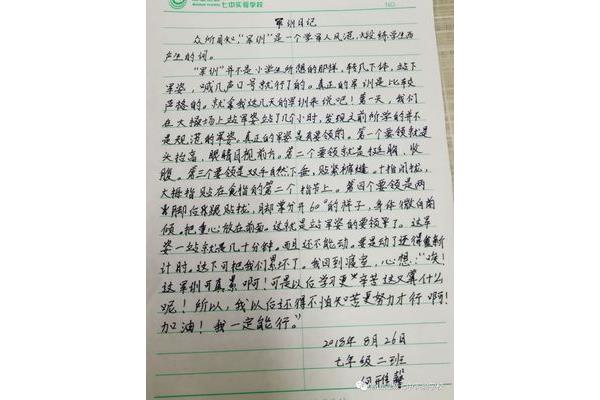 七中实验学校
NO.
军训日记
众所周知,“军训”是一个学军人风范,大家练学生而
产生的词。
“军训”并不是小学生所想的那样,转几下体,站下
军姿,喊几声口号就行了的。真正的军训是比较
严格的。就拿我这几天的军训来说吧!第一天,我们
在大操场上站军姿站了几个小时,发现之前所学的并不
是规范的军姿。真正的军姿是有要领的,第一个要领就是
头抬高,眼睛目视前方。第二个要领就是挺胸,收
腹。第三个要领是双手自然下垂,贴紧裤缝。十指闭拢,
大拇指贴在食指的第二个指节上。第四个要领是两
脚后跟贴拢,脚掌分开60°的样子,身体微向前
倾。把重心放在前面。这就是站军姿的要领了。这军
姿一站就是几十分钟。而且还不能动。要是动了便得重新
计时。这下可把我们累坏了。我回到寝室,心想:“唉!
这军训可真累啊!可是以后学习更辛苦这又算什么
呢!所以,我以后还得不怕知苦更努力才行啊!
加油!我一定能行。”
2018年8月26日
七年级二班
何雅馨